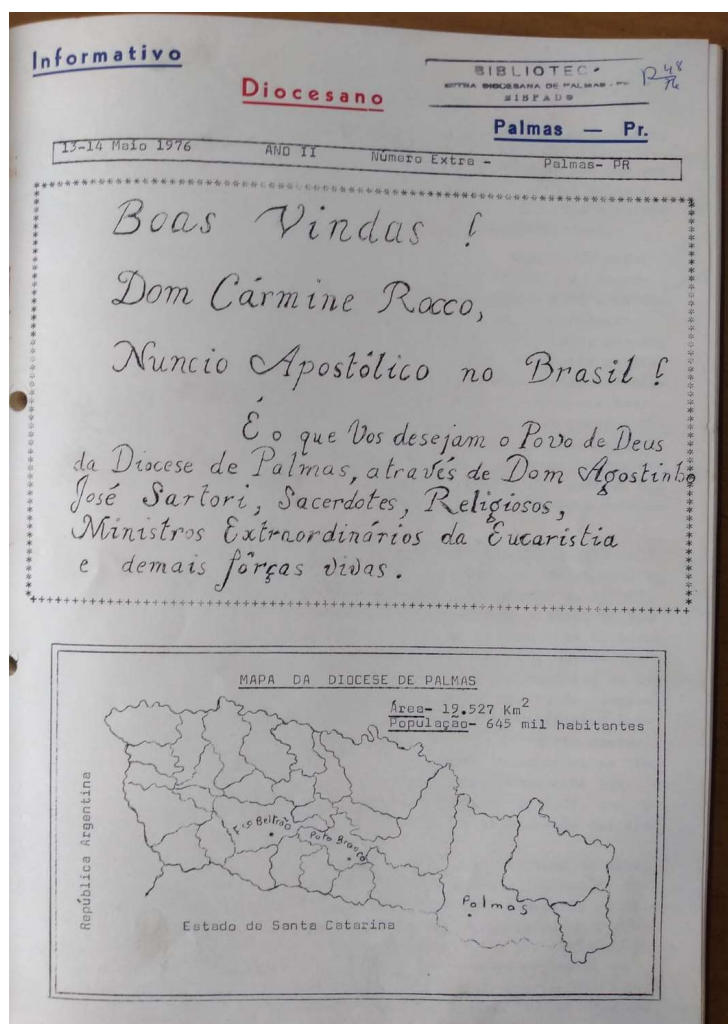 Informativo
Diocesano
BIBLIOTEC
DIOCESANA DE PALMAS
BISPADO
Palmas — Pr.
13-14 Maio 1976 ANO II Número Extra - Palmas- PR
Boas Vindas !
Dom Cármine Rocco,
Nuncio Apostólico no Brasil !
É o que Vos desejam o Povo de Deus
da Diocese de Palmas, através de Dom Agostinho
José Sartori, Sacerdotes, Religiosos,
Ministros Extraordinários da Eucaristia
e demais fôrças vivas.
MAPA DA DIOCESE DE PALMAS
Área- 19.527 Km²
População- 645 mil habitantes
República Argentina
Fco Beltrão
Pato Branco
Palmas
Estado de Santa Catarina